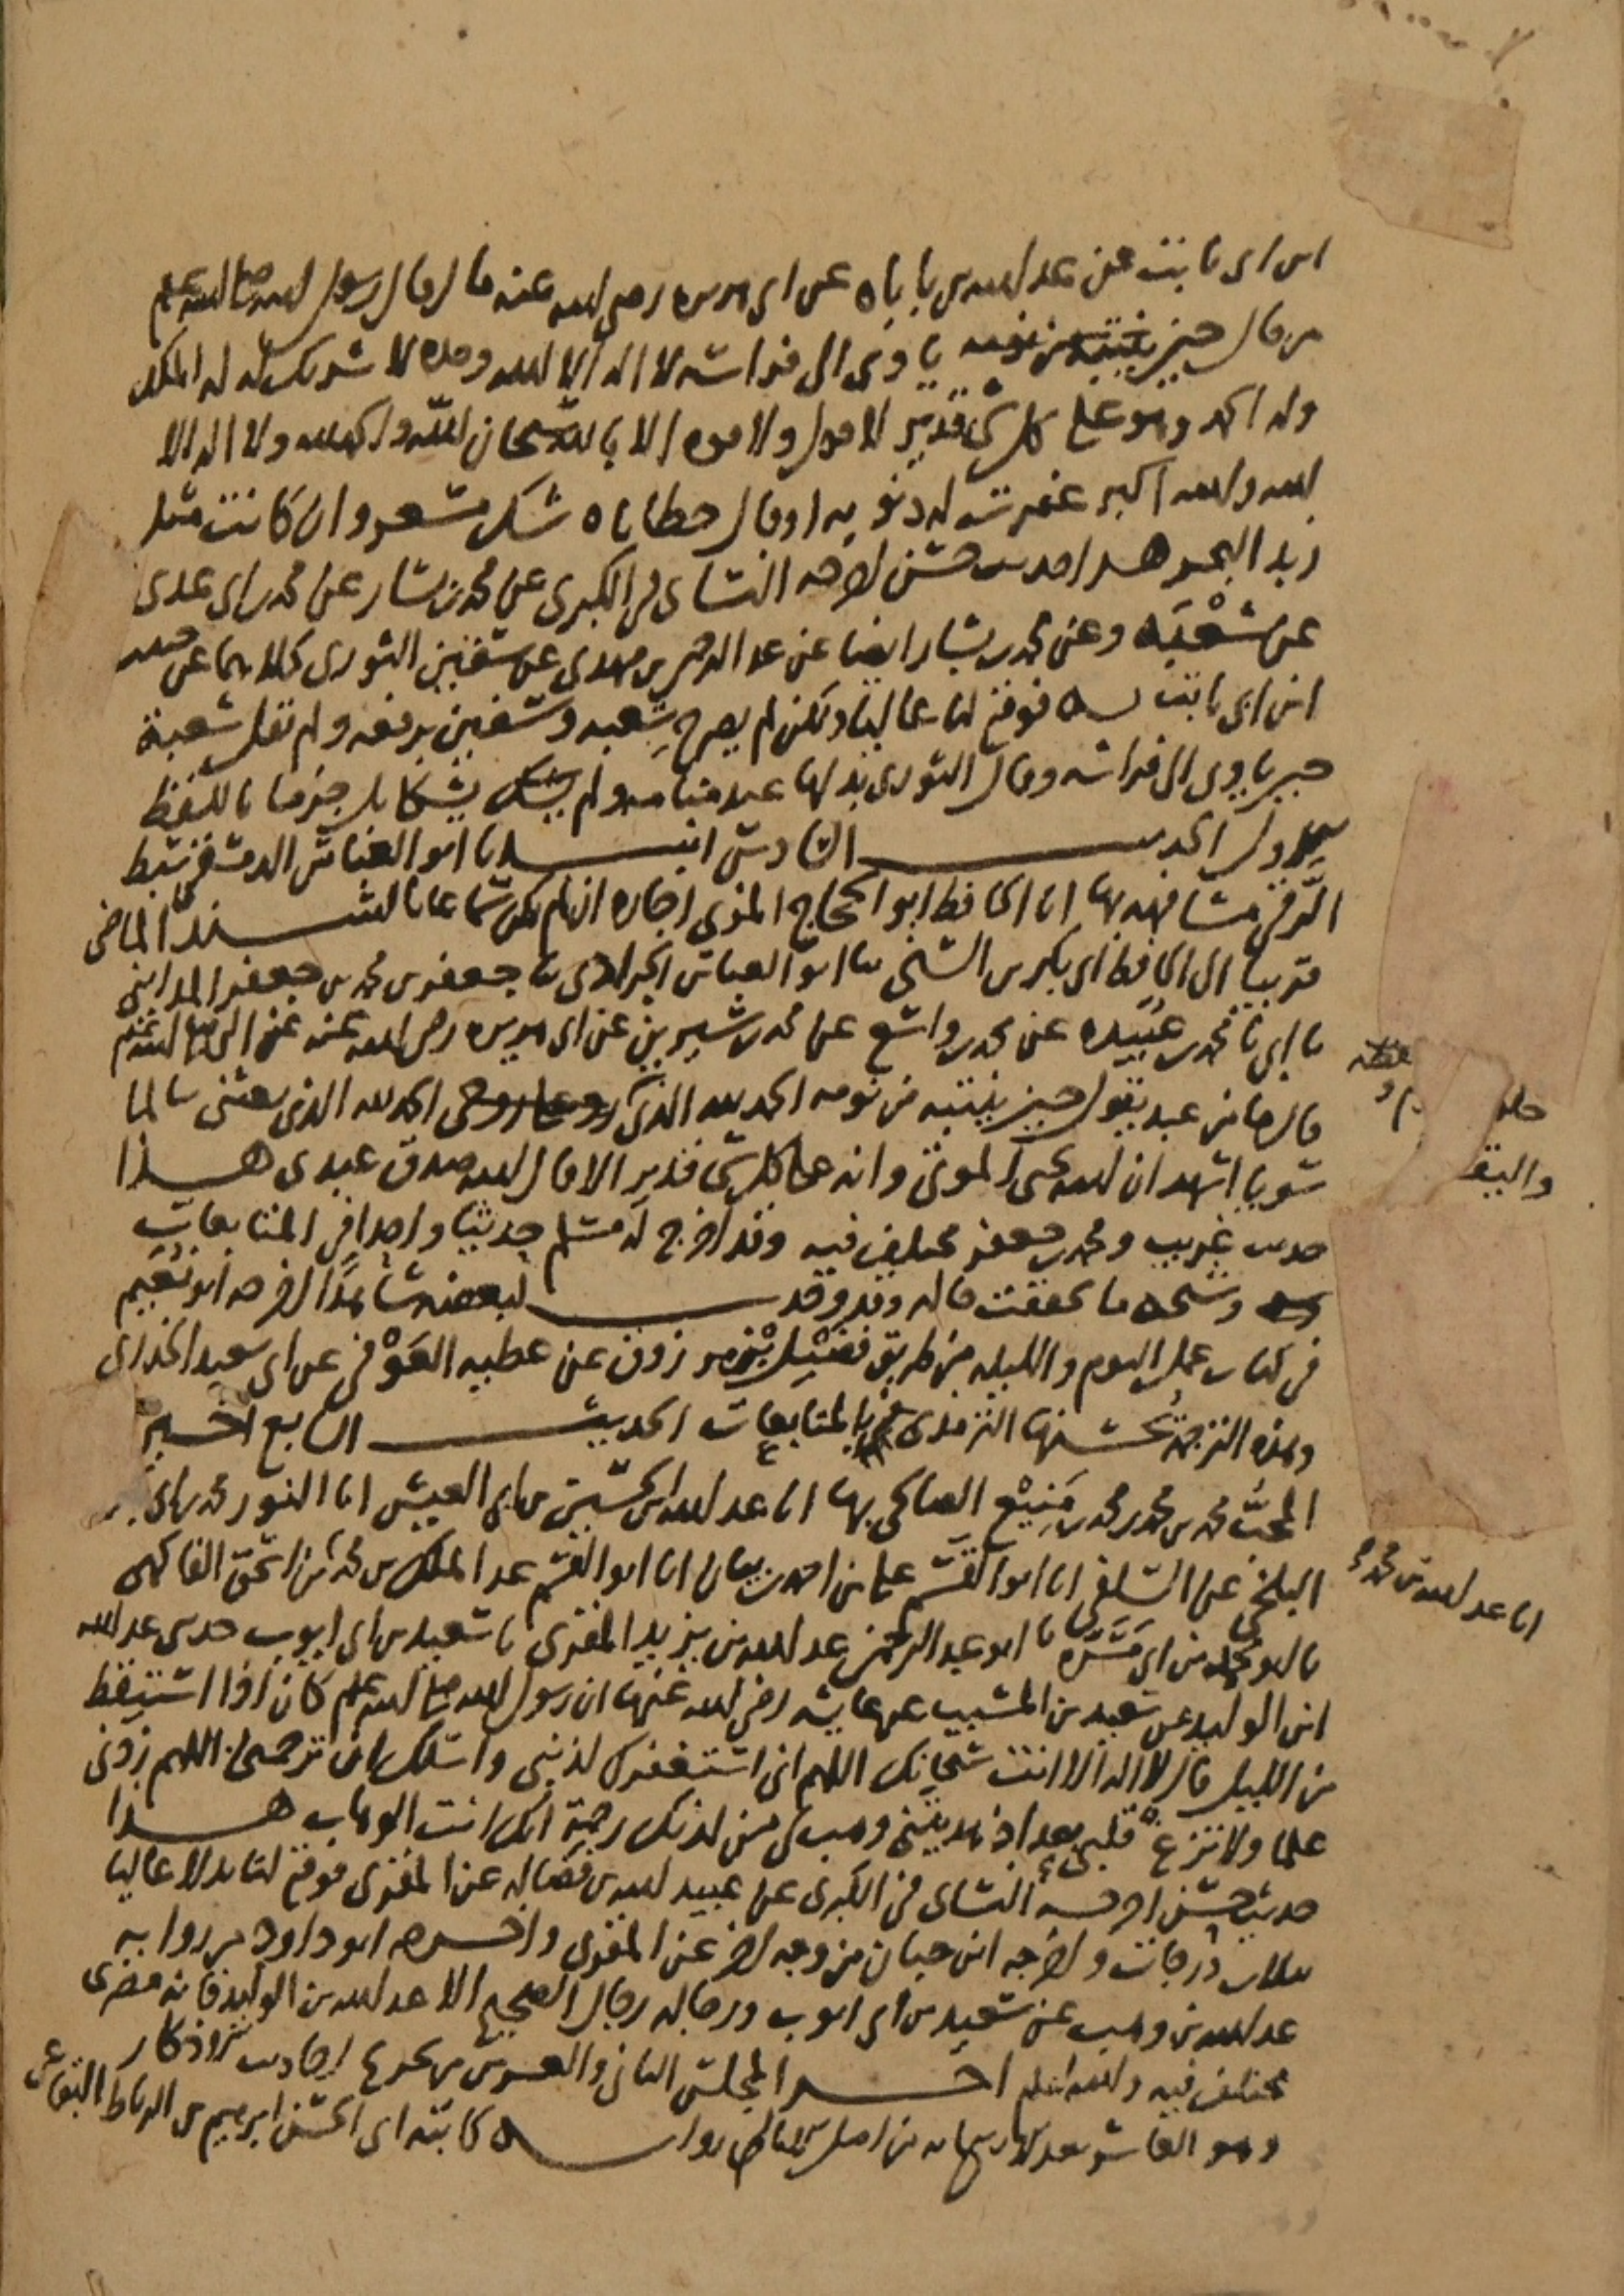 ابن ابي ثابت عن عبد الله بن باباه عن ابي هريرة رضي الله عنه قال قال رسول الله صلى الله عليه وسلم
من قال حين ياوي الى فراشه لا اله الا الله وحده لا شريك له له الملك
وله الحمد وهو على كل شي قدير لا حول ولا قوة الا بالله سبحان الله والحمد لله ولا اله الا
الله والله اكبر غفرت له ذنوبه او قال خطاياه شك مسعر وان كانت مثل
زبد البحر هذا حديث حسن اخرجه النسائي في الكبرى عن محمد بن بشار عن محمد بن ابي عدي
عن شعبة وعن محمد بن بشار ايضا عن عبد الرحمن بن مهدي عن سفين الثوري كلاهما عن حبيب
ابن ابي ثابت به فوقع لنا عاليا ولكن لم يصرح شعبة وسفين برفعه ولم يقل شعبة
حين ياوي الى فراشه وقال الثوري بدلها عند منامه ولم يشكا بل جزما باللفظ
الاول الحديث السادس انبانا ابو العباس الدمشقي
مشافهة بها انا الحافظ ابو الحجاج المزي اجازة ان لم يكن سماعا بالسند الماضي
قريبا الى الحافظ ابي بكر بن السني نا ابو العباس نا جعفر بن محمد بن جعفر المدايني
نا ابي نا محمد بن عبيده عن محمد بن واسع عن محمد بن سيرين عن ابي هريرة رضي الله عنه عن النبي صلى الله عليه وسلم
قال ما من عبد يقول حين ينتبه من نومه الحمد لله الذي الحمد لله الذي بعثني سالما
سويا اشهد ان الله يحيي الموتى وانه على كل شي قدير الا قال الله صدق عبدي هذا
حديث غريب ومحمد بن جعفر مختلف فيه وقد اخرج له مسلم حديثا واحدا في المتابعات
وشيخه ما تحققت حاله وقد وجدت لبعضه شاهدا اخرجه ابو نعيم
في كتاب عمل اليوم والليلة من طريق فضيل بن مرزوق عن عطية العوفي عن ابي سعيد الخدري
وهذه الترجمة حسنها الترمذي في المتابعات الحديث السابع اخبرني
المحب محمد بن محمد بن محمد بن منيع الصالحي بها انا عبد الله بن الحسين بن ابي العيش انا النور محمد بن ابي بكر
البلخي عن السلفي انا ابو القسم علي بن احمد بن بيان انا ابو القسم عبد الملك بن محمد نا ابن اسحق الفاكهي
نا ابو يحيى بن ابي مسرة نا ابو عبد الرحمن عبد الله بن يزيد المقري نا سعيد بن ابي ايوب حدثني عبد الله
ابن الوليد عن سعيد بن المسيب عن عايشة رضي الله عنها ان رسول الله صلى الله عليه وسلم كان اذا استيقظ
من الليل قال لا اله الا انت سبحانك اللهم اني استغفرك لذنبي واسئلك رحمتك اللهم زدني
علما ولا تزغ قلبي بعد اذ هديتني وهب لي من لدنك رحمة انك انت الوهاب هذا
حديث حسن اخرجه النسائي في الكبرى عن عبيد الله بن فضالة عن المقري فوقع لنا بدلا عاليا
بثلاث درجات واخرجه ابن حبان من وجه اخر عن المقري واخرجه ابو داود من رواية
عبد الله بن وهب عن سعيد بن ابي ايوب ورجاله رجال الصحيح الا عبد الله بن الوليد فانه مصري
مختلف فيه والله اعلم اخر المجلس الثاني والعشرين من تخريج احاديث الاذكار
وهو بعد من املا رواية كاتبه ابي الحسن ابرهيم بن الرباط البقاعي
انا عبد الله بن محمد